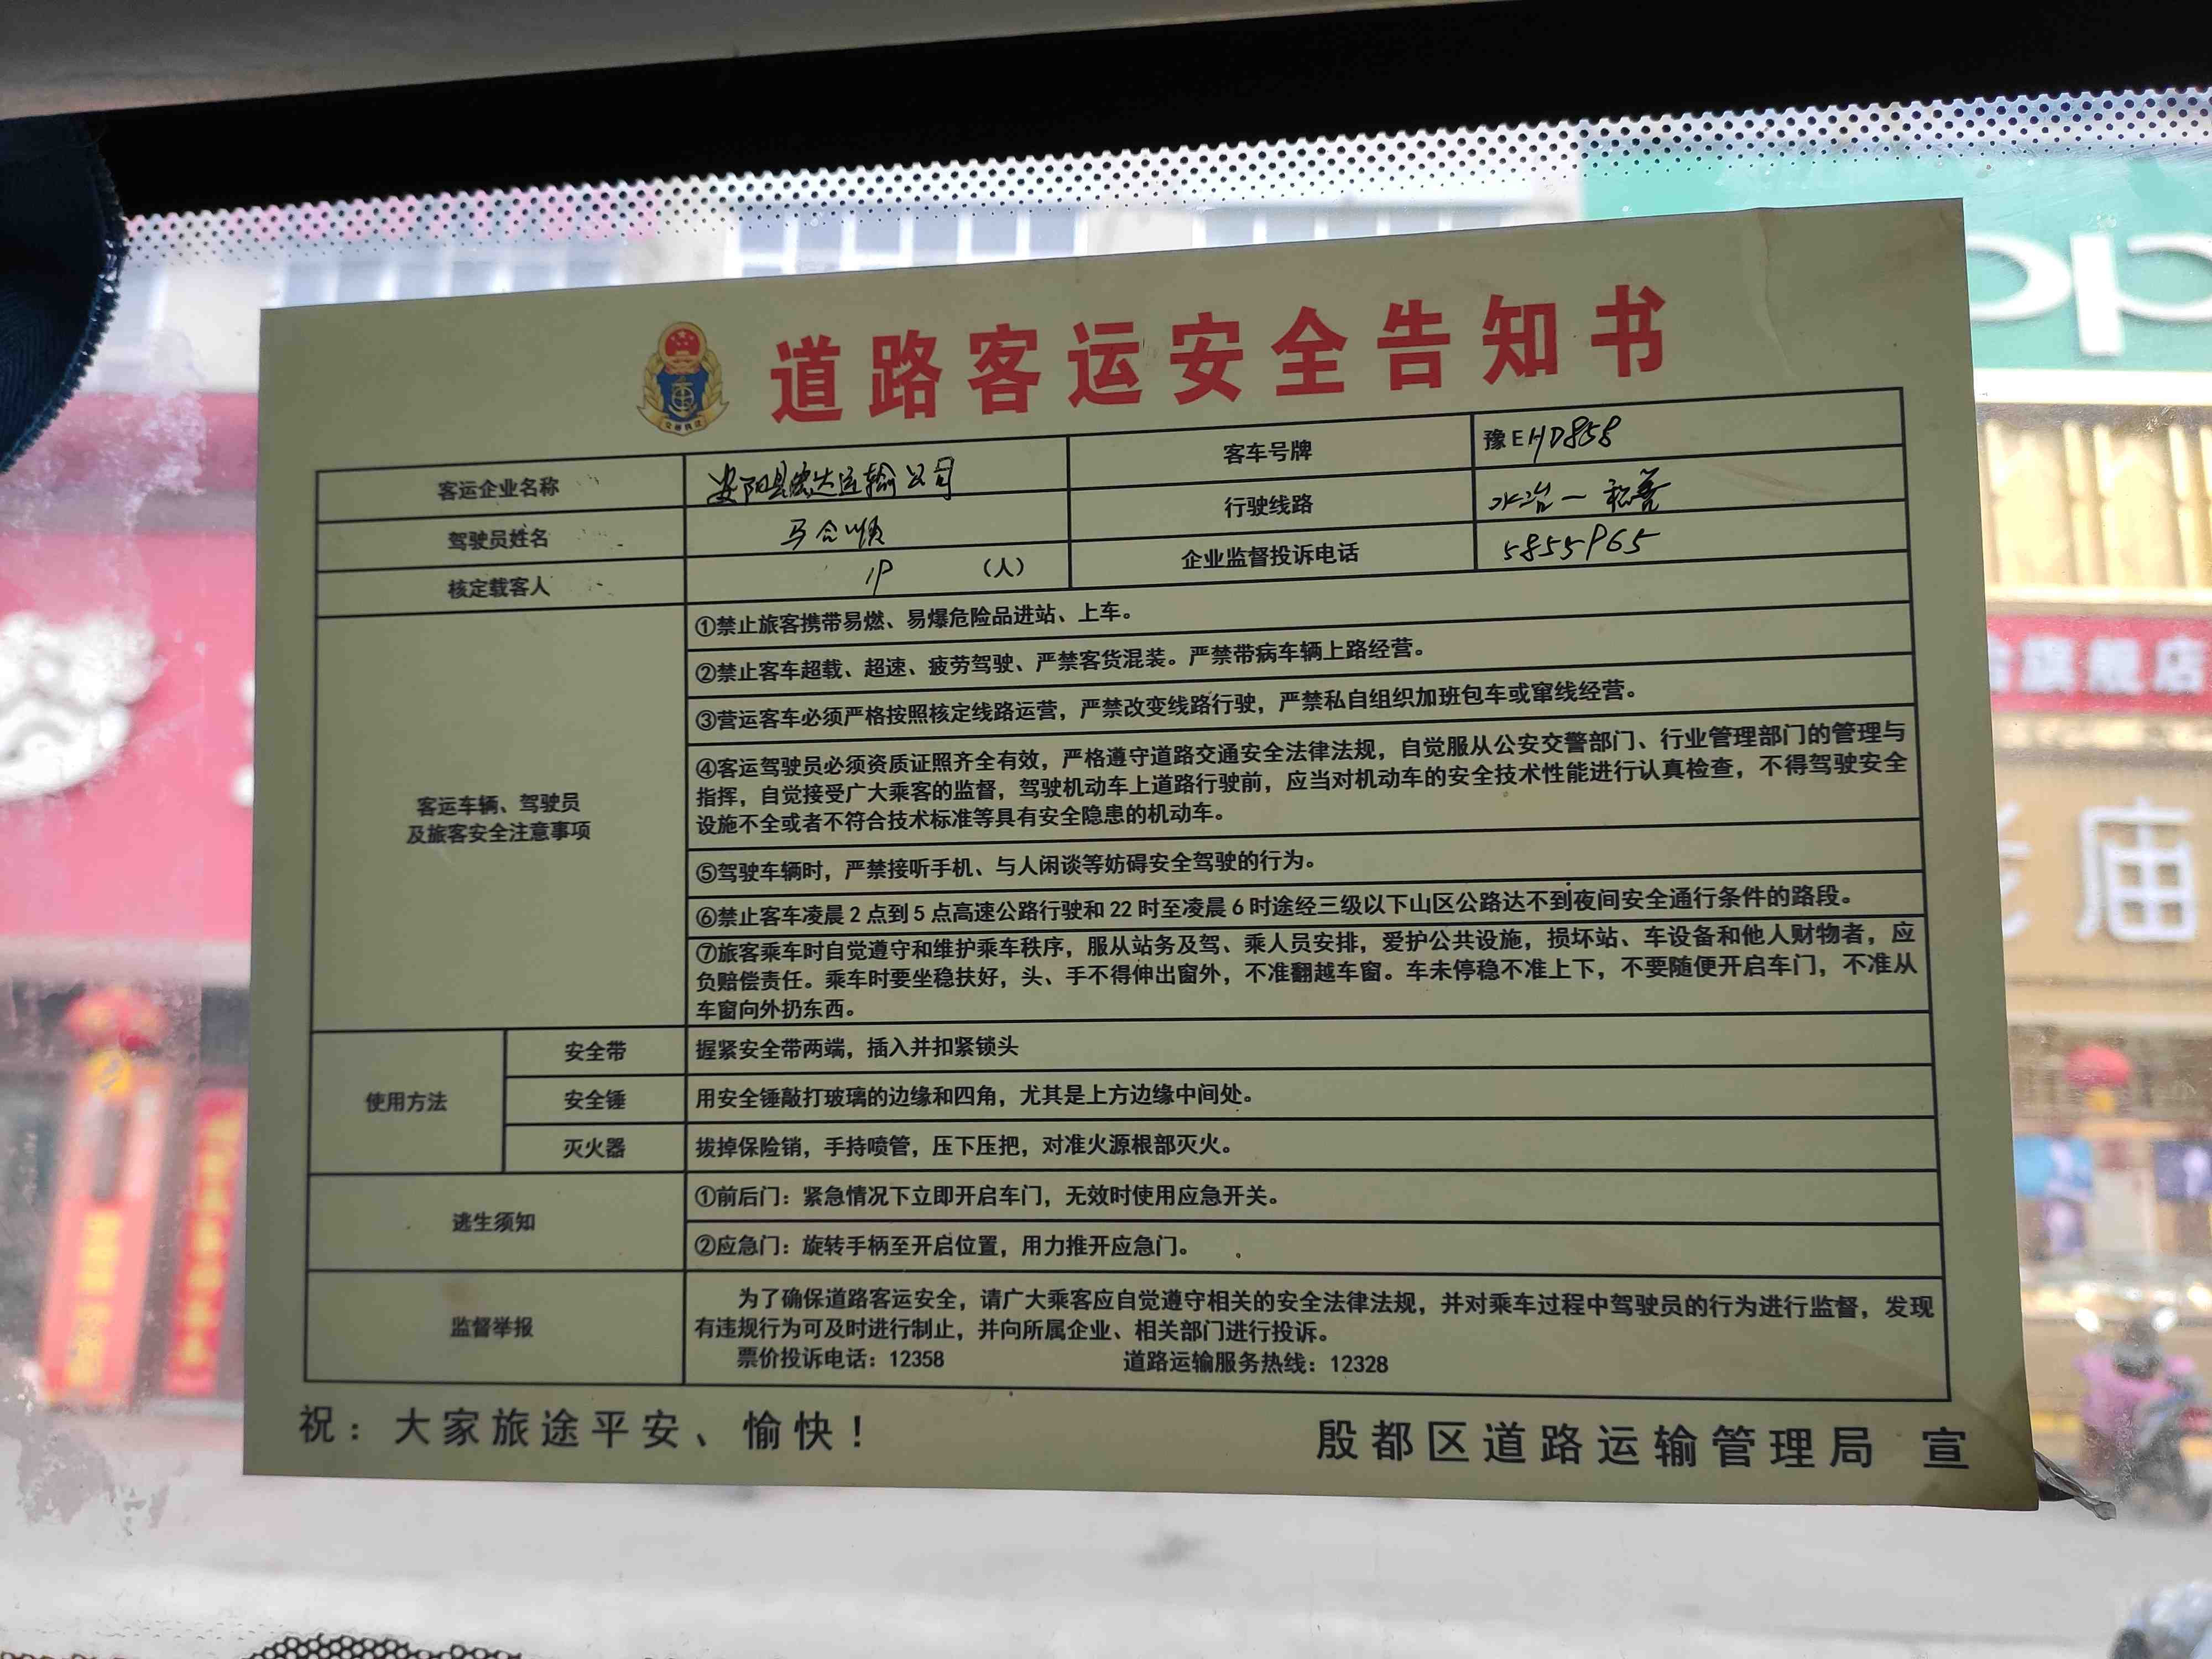 道路客运安全告知书
客运企业名称 安阳县宏达运输公司 客车号牌 豫EHD858
驾驶员姓名 马合顺 行驶线路 水冶一
核定载客人 19 (人) 企业监督投诉电话 5855965
客运车辆、驾驶员
及旅客安全注意事项
①禁止旅客携带易燃、易爆危险品进站、上车。
②禁止客车超载、超速、疲劳驾驶、严禁客货混装。严禁带病车辆上路经营。
③营运客车必须严格按照核定线路运营，严禁改变线路行驶，严禁私自组织加班包车或窜线经营。
④客运驾驶员必须资质证照齐全有效，严格遵守道路交通安全法律法规，自觉服从公安交警部门、行业管理部门的管理与
指挥，自觉接受广大乘客的监督，驾驶机动车上道路行驶前，应当对机动车的安全技术性能进行认真检查，不得驾驶安全
设施不全或者不符合技术标准等具有安全隐患的机动车。
⑤驾驶车辆时，严禁接听手机、与人闲谈等妨碍安全驾驶的行为。
⑥禁止客车凌晨2点到5点高速公路行驶和22时至凌晨6时途经三级以下山区公路达不到夜间安全通行条件的路段。
⑦旅客乘车时自觉遵守和维护乘车秩序，服从站务及驾、乘人员安排，爱护公共设施，损坏站、车设备和他人财物者，应
负赔偿责任。乘车时要坐稳扶好，头、手不得伸出窗外，不准翻越车窗。车未停稳不准上下，不要随便开启车门，不准从
车窗向外扔东西。
使用方法
安全带 握紧安全带两端，插入并扣紧锁头
安全锤 用安全锤敲打玻璃的边缘和四角，尤其是上方边缘中间处。
灭火器 拔掉保险销，手持喷管，压下压把，对准火源根部灭火。
逃生须知
①前后门：紧急情况下立即开启车门，无效时使用应急开关。
②应急门：旋转手柄至开启位置，用力推开应急门。
监督举报
为了确保道路客运安全，请广大乘客应自觉遵守相关的安全法律法规，并对乘车过程中驾驶员的行为进行监督，发现
有违规行为可及时进行制止，并向所属企业、相关部门进行投诉。
票价投诉电话：12358 道路运输服务热线：12328
祝：大家旅途平安、愉快！ 殷都区道路运输管理局 宣
旗舰店
庙